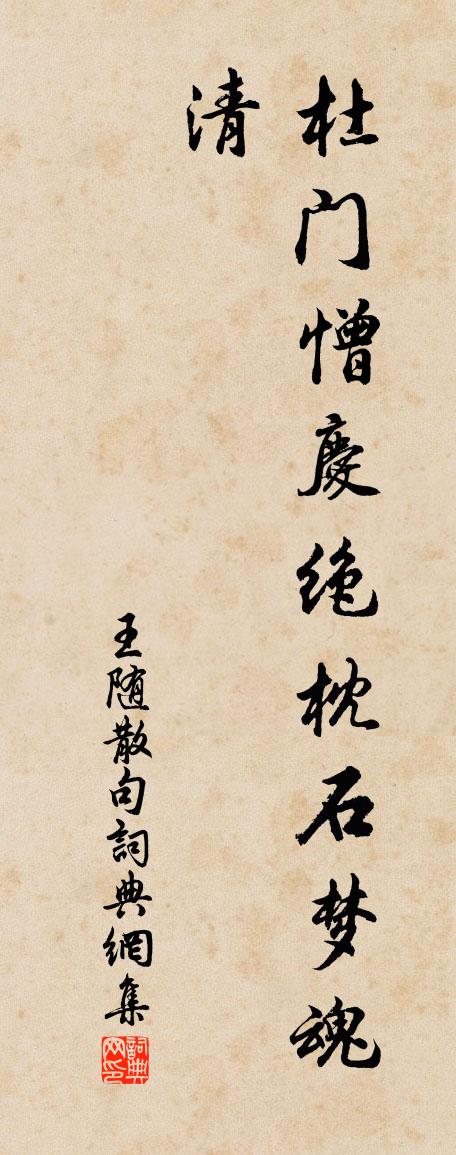 杜门憎慶绝枕石梦魂
清
王随散句詞典網集
詞典网印